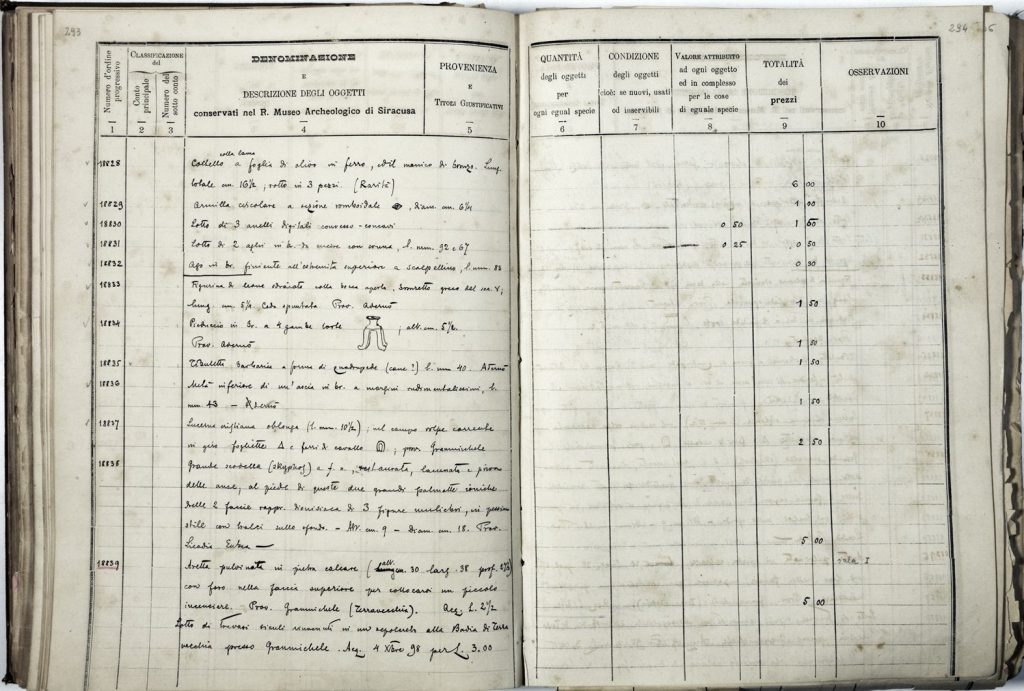 293
Numero d'ordine progressivo
CLASSIFICAZIONE del
Conto principale
Numero del sotto conto
DENOMINAZIONE
E
DESCRIZIONE DEGLI OGGETTI
conservati nel R. Museo Archeologico di Siracusa
PROVENIENZA
E
TITOLI GIUSTIFICATIVI
1 2 3 4 5
18828 Coltello colla lama a foglia di olivo in ferro, ed il manico di bronzo. Lung.
totale cm. 16½, rotto in 3 pezzi. (Rarità)
18829 Armilla circolare a sezione romboidale, diam. cm. 6½
18830 Lotto di 3 anelli digitali convesso-concavi
18831 Lotto di 2 aghi in br. da cucire con cruna, l. mm. 92 e 67
18832 Ago in br. finiente all'estremità superiore a scalpellino, l. mm. 83
18833 Figurina di leone sdraiato colla bocca aperta, bronzetto greco del sec. V;
lung. cm. 5½. Coda spuntata. Prov. Adernò
18834 Pieduccio in br. a 4 gambe torte ; alt. cm. 5½.
Prov. Adernò
18835 barbarica a forma di quadrupede (cane?) l. mm 40. Adernò
18836 Metà inferiore di un'ascia in br. a margini rudimentalissimi, l.
mm. 43 – Adernò
18837 Lucerna cristiana oblonga (l. mm. 10½); nel campo volpe corrente
in giro fogliette Δ e ferri di cavallo; prov. Grammichele
18838 Grande scodella (skyphos) a f. r., restaurata, lacunata e priva
delle anse, al piede di queste due grandi palmette ioniche
delle 2 faccie rappr. dionisiaca di 3 figure muliebri, in pessimo
stile con tralci sullo sfondo. – Alt. cm. 9 – Diam. cm. 18. Prov.
Licodia Eubea –
18839 Aretta pulvinata in pietra calcare (alt. cm. 30 larg. 38 prof. 27½)
con foro nella faccia superiore per collocarvi un piccolo
incensiere. – Prov. Grammichele (Terravecchia). Acq. L. 2½
Lotto di trovasi siculi rinvenuti in un sepolcreto alla Badia di Terra
vecchia presso Grammichele. Acq. 4 Xbre 98 per L. 3.00
294
QUANTITÀ
degli oggetti
per
ogni egual specie
CONDIZIONE
degli oggetti
cioè: se nuovi, usati
od inservibili
VALORE ATTRIBUITO
ad ogni oggetto
ed in complesso
per le cose
di eguale specie
TOTALITÀ
dei
prezzi
OSSERVAZIONI
6 7 8 9 10
6 00
1 00
0 50 1 60
0 25 0 50
0 30
1 50
1 50
1 50
1 50
2 50
5 00
sala I
5 00